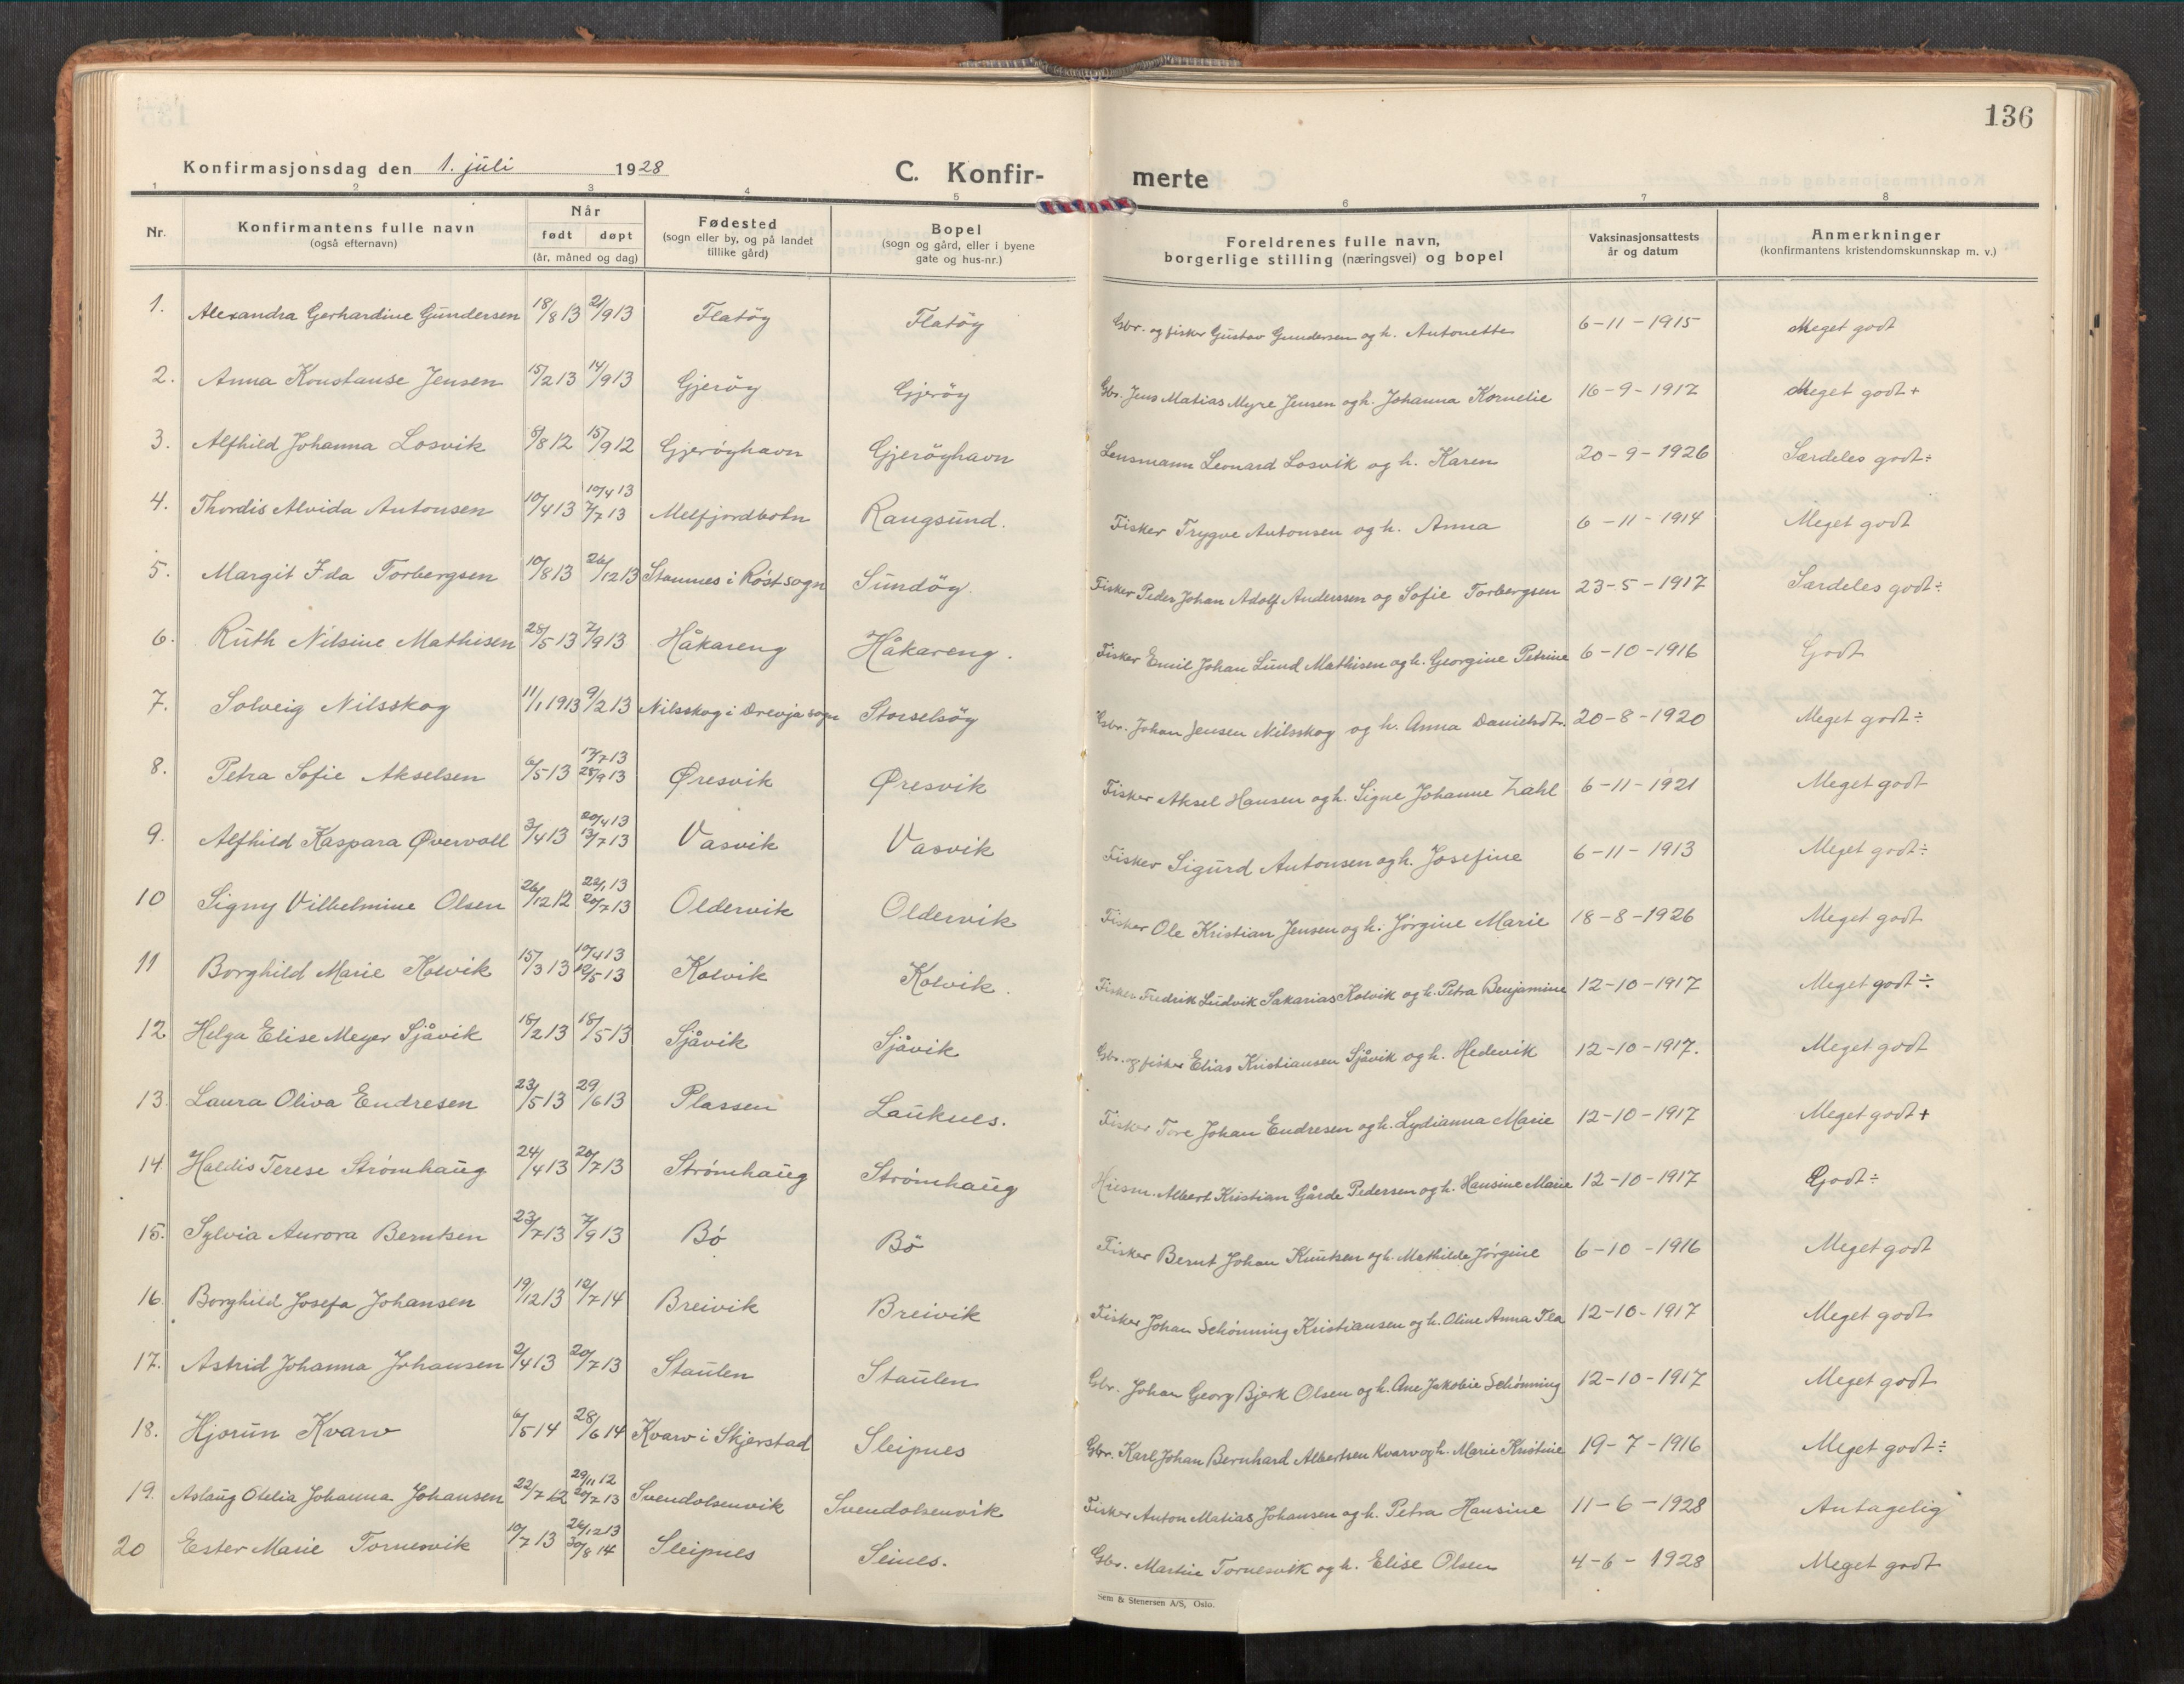 136
Konfirmasjonsdag den 1. juli 1928 C. Konfir- merte
1 2 3 4 5 6 7 8
Nr. Konfirmantens fulle navn (også efternavn) Når født døpt (år, måned og dag) Fødested (sogn eller by, og på landet tillike gård) Bopel (sogn og gård, eller i byene gate og hus-nr.) Foreldrenes fulle navn, borgerlige stilling (næringsvei) og bopel Vaksinasjonsattests år og datum Anmerkninger (konfirmantens kristendomskunnskap m. v.)
1. Alexandra Gerhardine Gundersen 18/8 13 21/9 13 Flatöy Flatöy Gbr. og fisker Gustav Gundersen og h. Antonette 6-11-1915 Meget godt
2. Anna Konstanse Jensen 15/2 13 14/9 13 Gjeröy Gjeröy Gbr. Jens Matias Myre Jensen og h. Johanna Kornelie 16-9-1917 Meget godt +
3. Alfhild Johanna Losvik 8/8 12 15/9 12 Gjeröyhavn Gjeröyhavn Lensmann Leonard Losvik og h. Karen 20-9-1926 Særdeles godt÷
4. Thordis Alvida Antonsen 10/4 13 10/4 13 7/7 13 Melfjordbotn Rangsund. Fisker Trygve Antonsen og h. Anna 6-11-1914 Meget godt
5. Margit Ida Torbergsen 10/8 13 26/12 13 Stamnes i Röst sogn Sundöy. Fisker Peder Johan Adolf Anderssen og Sofie Torbergsen 23-5-1917 Særdeles godt÷
6. Ruth Nilsine Mathisen 28/5 13 7/9 13 Håkareng Håkareng. Fisker Emil Johan Lund Mathisen og h. Georgine Petrine 6-10-1916 Godt
7. Solveig Nilsskog 11/1 1913 9/2 13 Nilsskog i Drevja sogn Storselsöy Gbr. Johan Jensen Nilsskog og h. Anna Danielsdtr. 20-8-1920 Meget godt÷
8. Petra Sofie Akselsen 6/5 13 17/7 13 28/9 13 Øresvik Øresvik Fisker Aksel Hansen og h. Signe Johanne Zahl 6-11-1921 Meget godt
9. Alfhild Kaspara Øvervoll 3/4 13 20/4 13 13/7 13 Vasvik Vasvik Fisker Sigurd Antonsen og h. Josefine 6-11-1913 Meget godt÷
10 Signy Vilhelmine Olsen 26/12 12 22/1 13 20/7 13 Oldervik Oldervik Fisker Ole Kristian Jensen og h. Jörgine Marie 18-8-1926 Meget godt
11 Borghild Marie Kolvik 15/3 13 19/4 13 12/5 13 Kolvik Kolvik. Fisker Fredrik Ludvik Sakarias Kolvik og h. Petra Benjamine 12-10-1917 Meget godt÷
12 Helga Elise Meyer Sjåvik 18/2 13 18/5 13 Sjåvik Sjåvik Gbr. og fisker Elias Kristiansen Sjåvik og h. Hedevik 12-10-1917. Meget godt
13. Laura Oliva Endresen 23/5 13 29/6 13 Plassen Lauknes. Fisker Tore Johan Endresen og h. Lydianna Marie 12-10-1917 Meget godt +
14. Haldis Terese Strömhaug 24/4 13 20/7 13 Strömhaug Strömhaug Husm. Albert Kristian Gårde Pedersen og h. Hansine Marie 12-10-1917 Godt÷
15. Sylvia Aurora Berntsen 23/7 13 7/9 13 Bö Bö Fisker Bernt Johan Knutsen og h. Mathilde Jörgine 6-10-1916 Meget godt
16. Borghild Josefa Johansen 19/12 13 12/7 14 Breivik Breivik Fisker Johan Schönning Kristiansen og h. Oline Anna 12-10-1917 Meget godt
17. Astrid Johanna Johansen 2/4 13 20/7 13 Staulen Staulen Gbr. Johan Georg Bjerk Olsen og h. Ane Jakobie Schönning 12-10-1917 Meget godt
18. Hjorun Kvarv 6/5 14 28/6 14 Kvarv i Skjerstad Sleipnes Gbr. Karl Johan Bernhard Albertsen Kvarv og h. Marie Kristine 19-7-1916 Meget godt÷
19. Aslaug Otelia Johanna Johansen 22/7 12 29/11 12 20/7 13 Svendolsenvik Svendolsenvik Fisker Anton Matias Johansen og h. Petra Hansine 11-6-1928 Antagelig
20 Ester Marie Tornesvik 10/7 13 26/12 13 30/8 14 Sleipnes Seines. Gbr. Martin Tornesvik og h. Elise Olsen 4-6-1928 Meget godt
Sem & Stenersen A/S, Oslo.